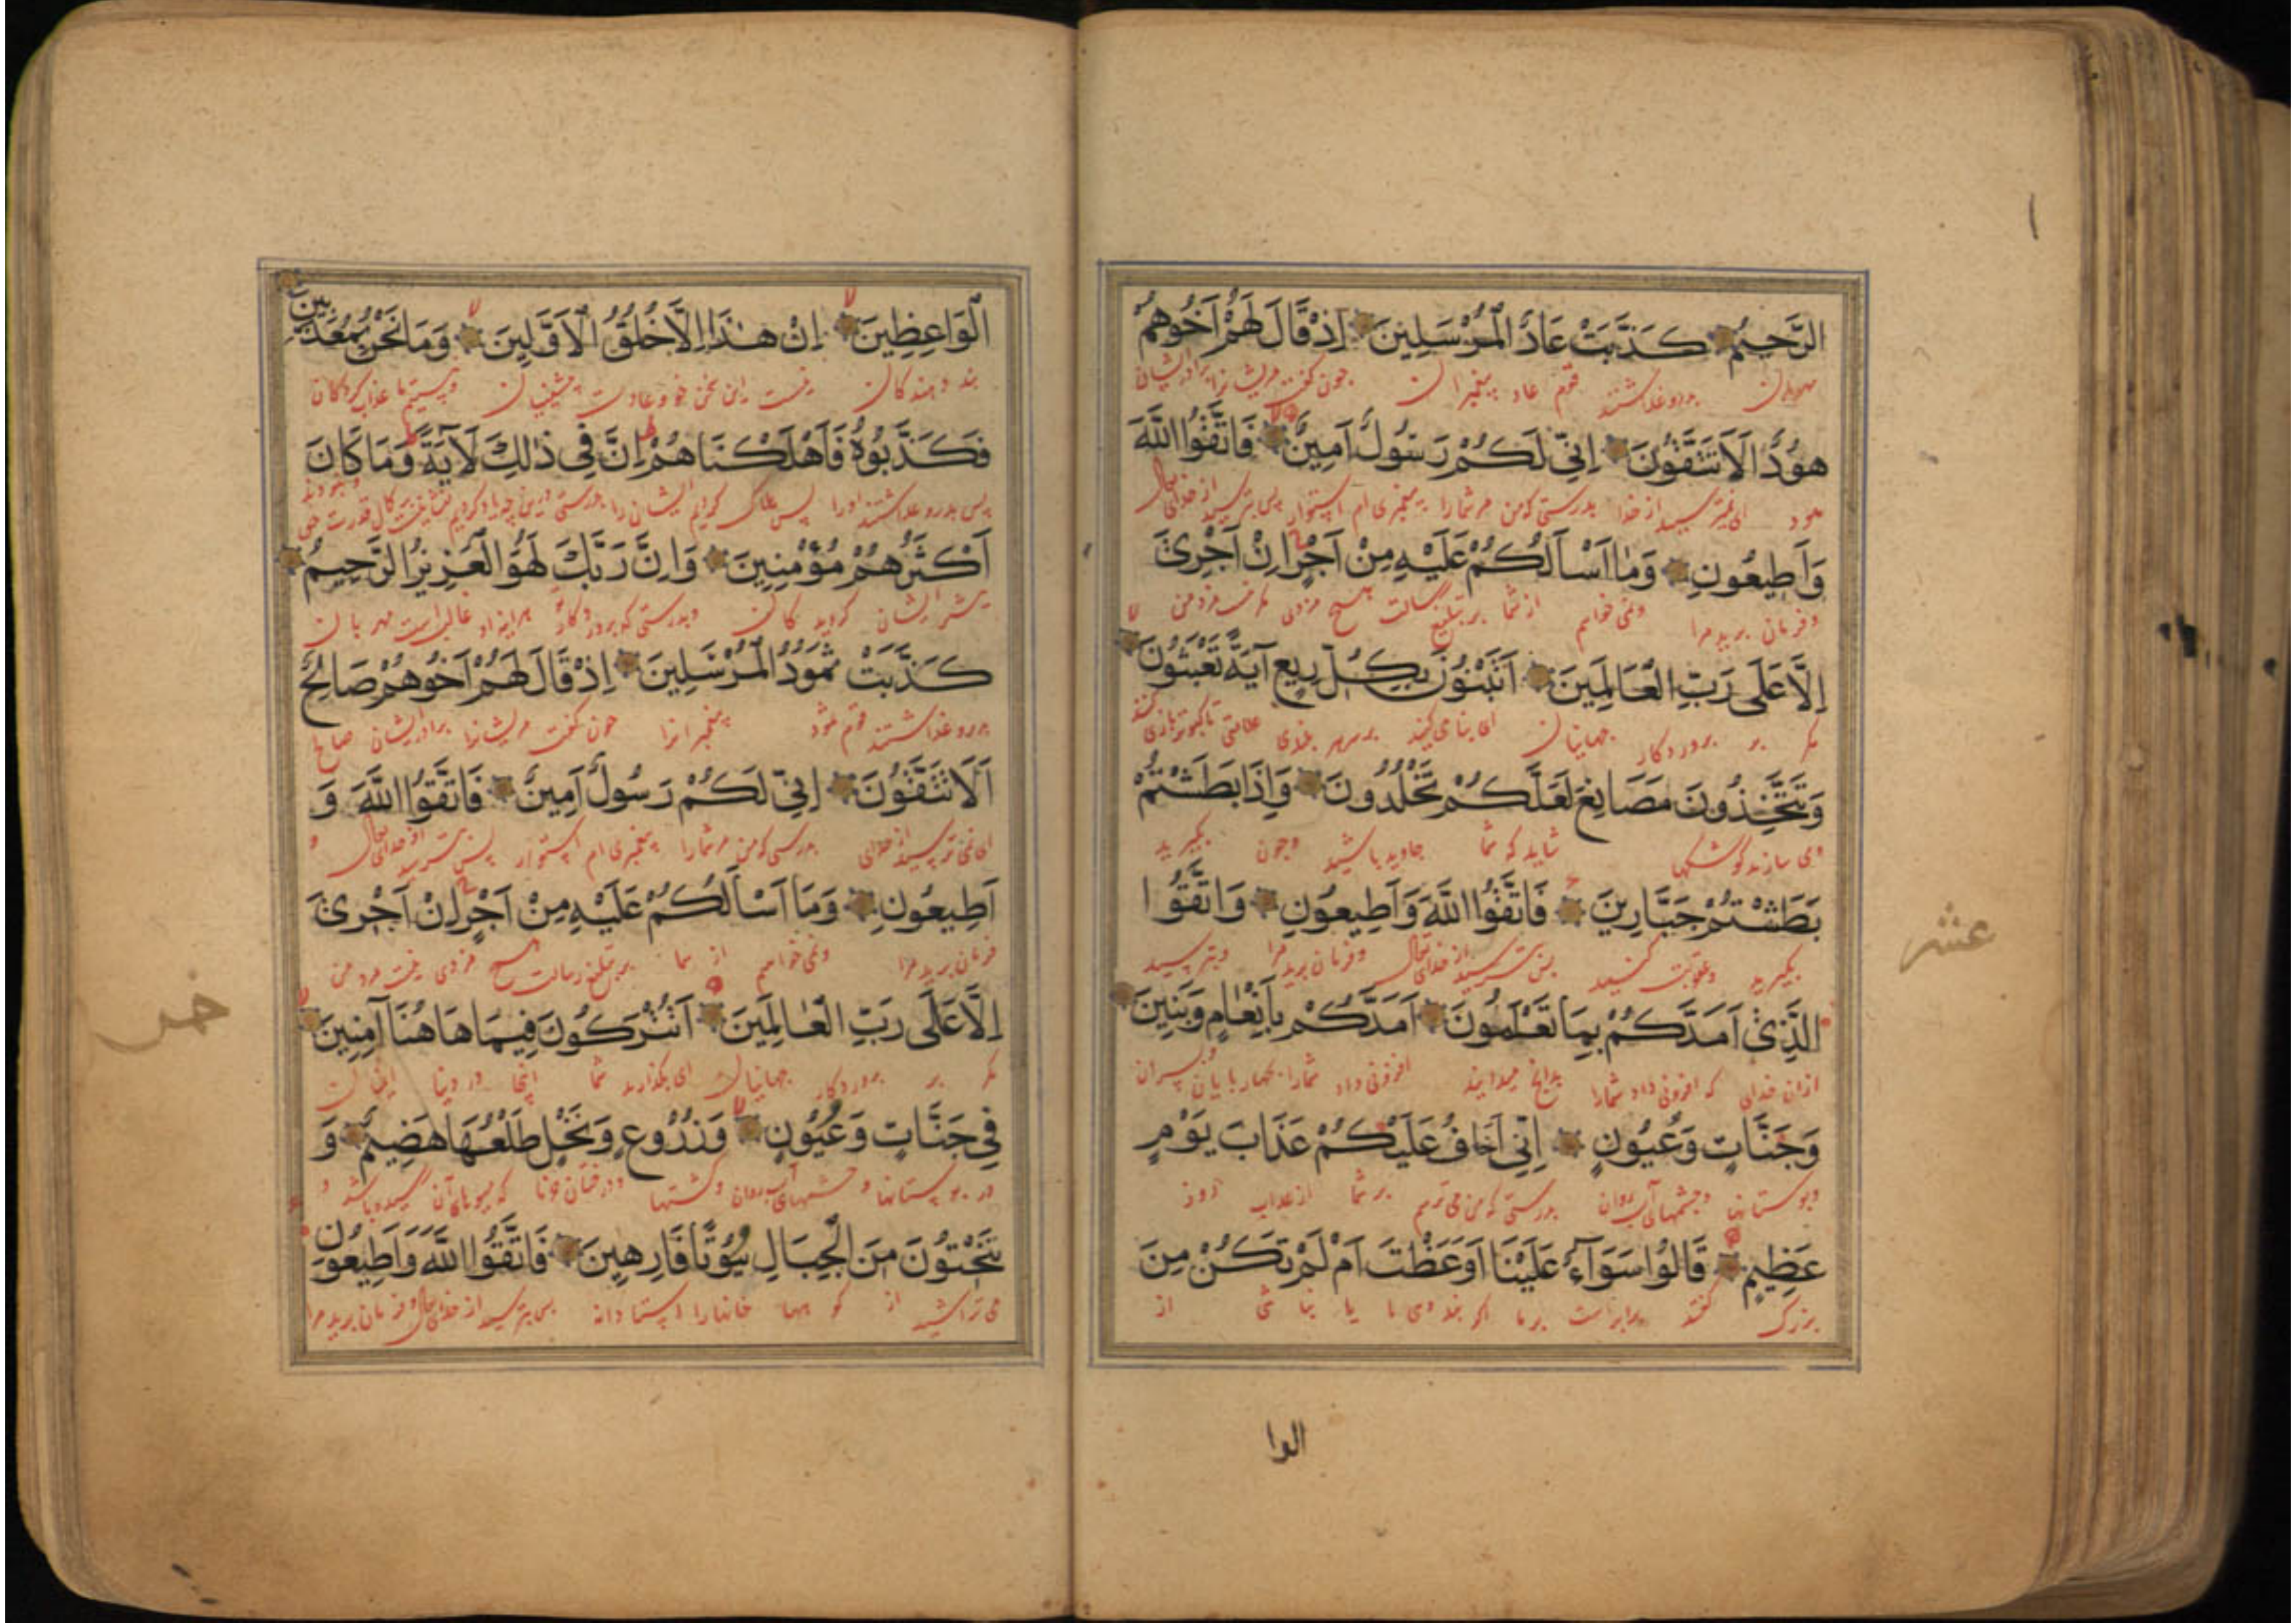 الرَّحِيمُ كَذَّبَتْ عَادٌ الْمُرْسَلِينَ اِذْ قَالَ لَهُمْ اَخُوهُمْ
مهربان بدروغ داشتند قوم عاد پیغمبران چون گفت مریشانرا برادریشان
هُودٌ اَلَا تَتَّقُونَ اِنِّي لَكُمْ رَسُولٌ اَمِينٌ فَاتَّقُوا اللّٰهَ
هود از خدا بدرستی که من مر شما را پیغمبری ام استوار پس بترسید از خدای
وَاَطِيعُونِ وَمَا اَسْاَلُكُمْ عَلَيْهِ مِنْ اَجْرٍ اِنْ اَجْرِيَ
و فرمان برید مرا و نمی خواهم از شما بر تبلیغ رسالت هیچ مزدی مزد من
اِلَّا عَلَى رَبِّ الْعَالَمِينَ اَتَبْنُونَ بِكُلِّ رِيعٍ آيَةً تَعْبَثُونَ
مگر بر پروردگار جهانیان ای بنا می کنید بر سر هر بلندی علامتی
وَتَتَّخِذُونَ مَصَانِعَ لَعَلَّكُمْ تَخْلُدُونَ وَاِذَا بَطَشْتُمْ
و می سازید کوشکها شاید که شما جاوید باشید و چون بگیرید
بَطَشْتُمْ جَبَّارِينَ فَاتَّقُوا اللّٰهَ وَاَطِيعُونِ وَاتَّقُوا
بگیرید و عقوبت کنید پس بترسید از خدای تعالی و فرمان برید مرا و بترسید
الَّذِي اَمَدَّكُمْ بِمَا تَعْلَمُونَ اَمَدَّكُمْ بِاَنْعَامٍ وَبَنِينَ
از آن خدای که افزونی داد شما را بدانچ میدانید افزونی داد شما را بچهار پایان و پسران
وَجَنَّاتٍ وَعُيُونٍ اِنِّي اَخَافُ عَلَيْكُمْ عَذَابَ يَوْمٍ
و بوستانها و چشمهای آب روان بدرستی که من می ترسم بر شما از عذاب روز
عَظِيمٍ قَالُوا سَوَآءٌ عَلَيْنَا اَوَعَظْتَ اَمْ لَمْ تَكُنْ مِنَ
بزرگ گفتند برابر است بر ما اگر پند دهی ما یا نباشی از
عشر
الوا
الْوَاعِظِينَ اِنْ هٰذَا اِلَّا خُلُقُ الْاَوَّلِينَ وَمَا نَحْنُ بِمُعَذَّبِينَ
پند دهندگان نیست این سخن خو و عادت پیشینیان و نیستیم ما عذاب کردگان
فَكَذَّبُوهُ فَاَهْلَكْنَاهُمْ اِنَّ فِي ذٰلِكَ لَآيَةً وَمَا كَانَ
پس بدروغ داشتند او را پس هلاک کردیم ایشان را بدرستی
اَكْثَرُهُمْ مُؤْمِنِينَ وَاِنَّ رَبَّكَ لَهُوَ الْعَزِيزُ الرَّحِيمُ
بیشتر ایشان گرویدگان و بدرستی که پروردگار تو هراینه او غالب است مهربان
كَذَّبَتْ ثَمُودُ الْمُرْسَلِينَ اِذْ قَالَ لَهُمْ اَخُوهُمْ صَالِحٌ
بدروغ داشتند قوم ثمود پیغمبرانرا چون گفت مریشانرا برادریشان صالح
اَلَا تَتَّقُونَ اِنِّي لَكُمْ رَسُولٌ اَمِينٌ فَاتَّقُوا اللّٰهَ وَ
ای نمی ترسید از خدای بدرستی که من مر شما را پیغمبری ام استوار پس بترسید از خدای تعالی و
اَطِيعُونِ وَمَا اَسْاَلُكُمْ عَلَيْهِ مِنْ اَجْرٍ اِنْ اَجْرِيَ
فرمان برید مرا و نمی خواهم از شما بر تبلیغ رسالت هیچ مزدی نیست مزد من
اِلَّا عَلَى رَبِّ الْعَالَمِينَ اَتُتْرَكُونَ فِيمَا هَاهُنَا آمِنِينَ
مگر بر پروردگار جهانیان ای بگذارند شما اینجا در دنیا
فِي جَنَّاتٍ وَعُيُونٍ وَزُرُوعٍ وَنَخْلٍ طَلْعُهَا هَضِيمٌ وَ
در بوستانها و چشمهای آب روان و کشتها و درختان خرما که میوهای آن رسیده باشد و
تَنْحِتُونَ مِنَ الْجِبَالِ بُيُوتًا فَارِهِينَ فَاتَّقُوا اللّٰهَ وَاَطِيعُونِ
می تراشید از کوهها خانها را استادانه پس بترسید از خدای تعالی و فرمان برید مرا
خمس